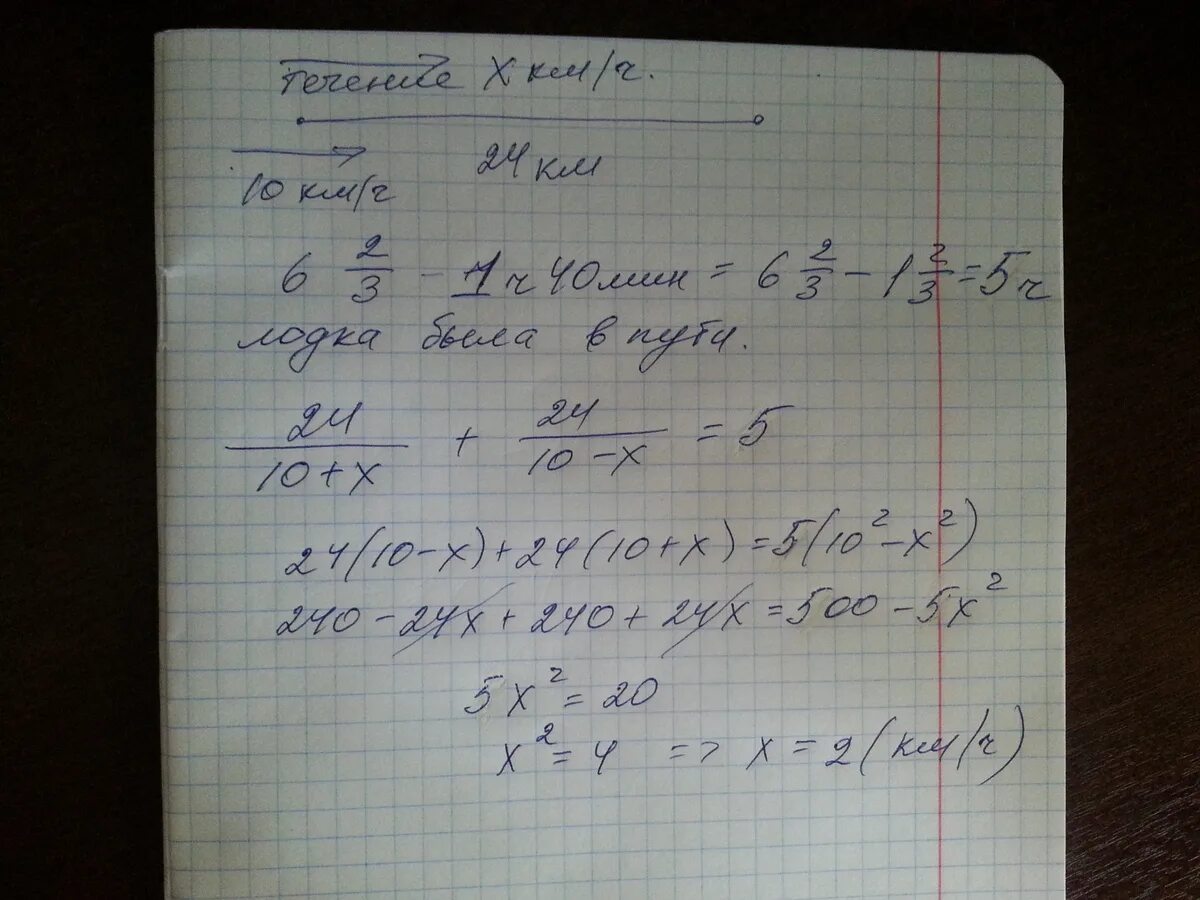 течение х км/ч.
24 км
10 км/ч
6 2/3 - 1 ч 40 мин = 6 2/3 - 1 2/3 = 5 ч
лодка была в пути.
24/(10+х) + 24/(10-х) = 5
24(10-х)+24(10+х)=5(10²-х²)
240-24х+240+24х=500-5х²
5х²=20
х²=4 => х=2(км/ч)